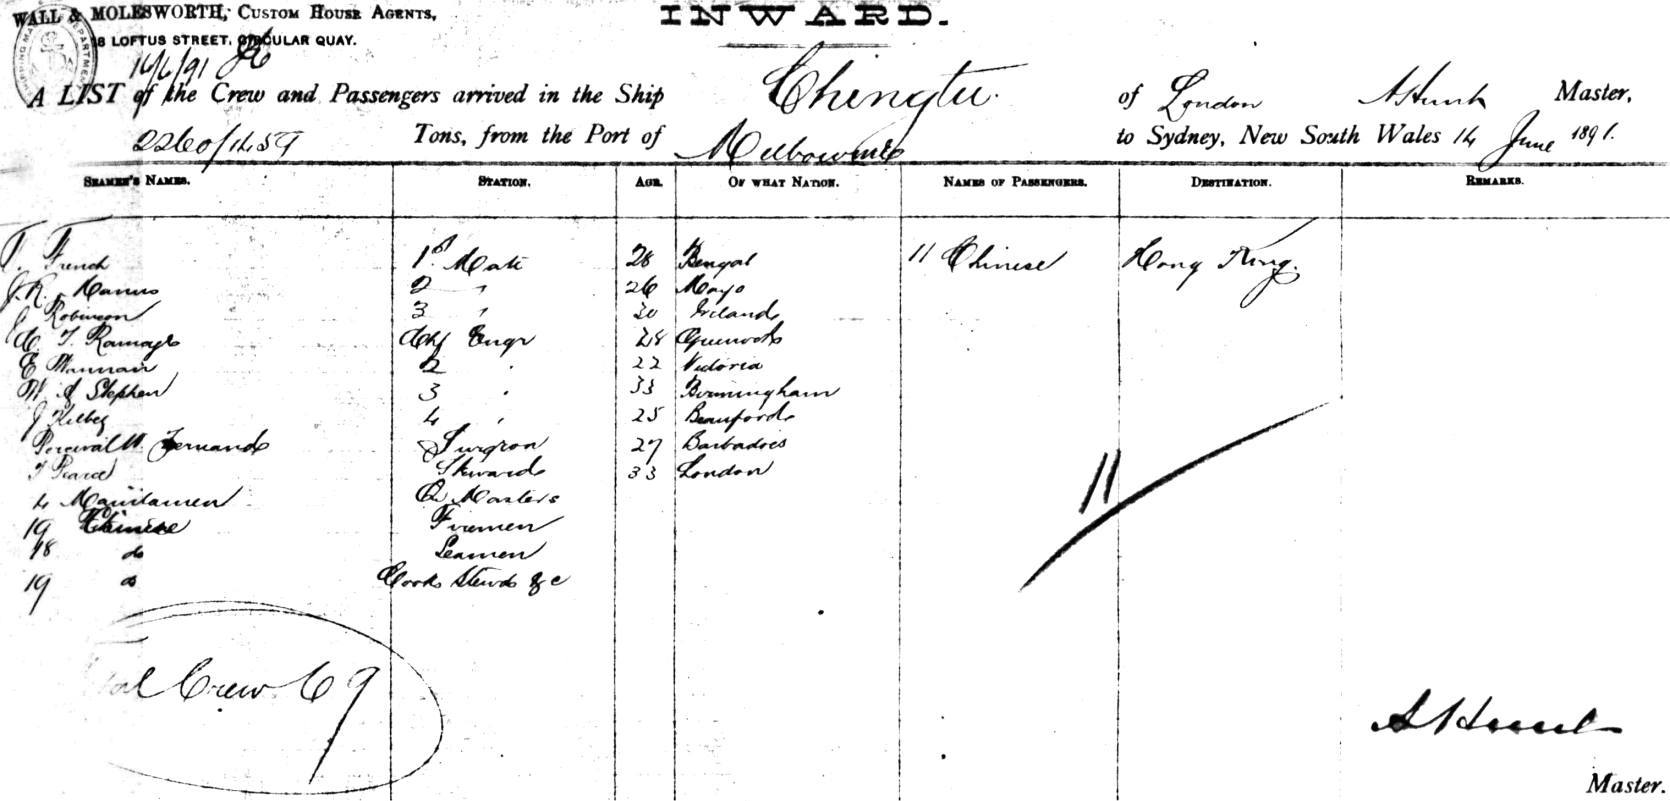 WALL & MOLESWORTH, CUSTOM HOUSE AGENTS,
INWARD.
8 LOFTUS STREET, CIRCULAR QUAY.
16/6/91
A LIST of the Crew and Passengers arrived in the Ship Chingtu. of London A Hunt Master,
2260/1459 Tons, from the Port of Melbourne to Sydney, New South Wales 14 June 1891.
SEAMEN'S NAMES. STATION. AGE. OF WHAT NATION. NAMES OF PASSENGERS. DESTINATION. REMARKS.
T. French 1st Mate 28 Bengal 11 Chinese Hong Kong.
J. R. 2 " 26 Mayo
J Robinson 3 " 30 Ireland
C. T. Ramage Chf Engr 28 Greenock
E 2 " 22 Victoria
W. A Stephen 3 " 33 Birmingham
J Kelbey 4 " 25 Beauford
Percival W. Fernand Surgeon 27 Barbadoes
T Pearce Steward 33 London
4 Manilamen Q. Masters
19 Chinese Firemen
18 do Seamen
19 do Cooks Stewds &c
11
Crew 69
A Hunt
Master.